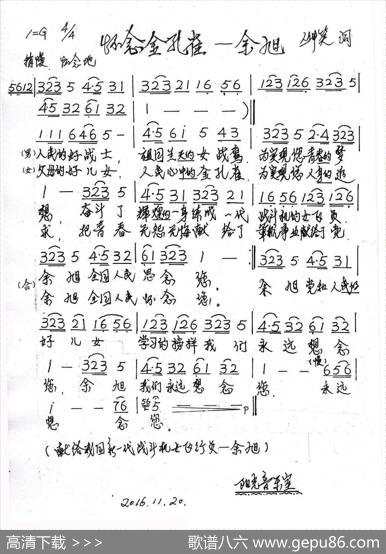 怀念金孔雀 — 余旭
1=G 4/4
稍慢 怀念地
5612 | 323 5 4·5 31 | 323 21 16 56 | 123 126 323 5 |
4·5 32 61 32 | 1 — — — ) ‖
111 646 5 - | 4·5 61 5 43 | 323 5 2·4 323 |
(男) 人民的好战士, 祖国蓝天的女战鹰 为实现您青春的梦
(女) 父母的好儿女, 人民心中的金孔雀 为实现您人身的追
1 — 323 5 | 4·5 31 323 21 | 16 56 123 126 |
想, 奋斗了 辉煌的一身练成一代 战斗机的女飞员
求, 把青春 无怨无悔献给了 军航事业献给了党
323 5 4·5 32 | 61 323 1 — | 323 5 4·5 31 |
(合) 余旭全国人民思念您。 余旭党和人民的
余旭全国人民怀念您。
323 21 16 56 | 123 126 323 5 | 4·5 32 61 32 |
好儿女 学习的榜样我们 永远想念
1 — 323 5 | 4·5 32 61 32 | 1 — — 656 |
(慢)
您, 余旭 我们永远想念 您, 永远
i — — 76 | 5
想 念 您。
(献给我国新一代战斗机女飞行员—余旭)
阳光音乐室
2016.11.20.
高清下载 >>>
歌谱八六 www.gepu86.com